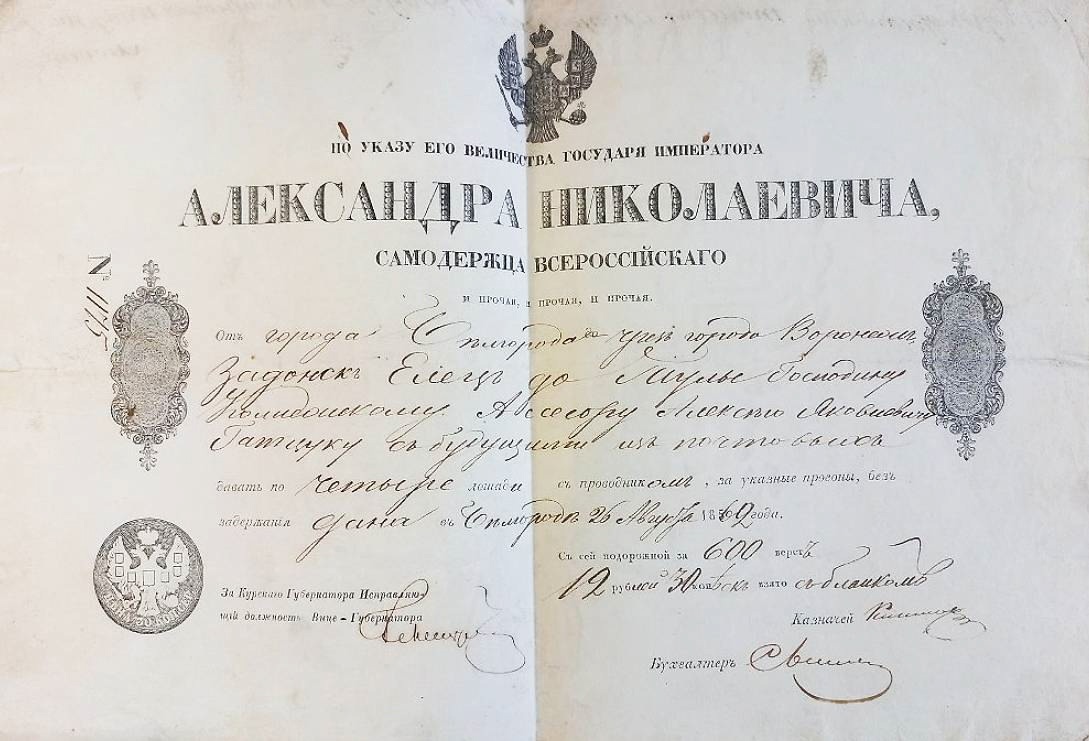 ПО УКАЗУ ЕГО ВЕЛИЧЕСТВА ГОСУДАРЯ ИМПЕРАТОРА
АЛЕКСАНДРА НИКОЛАЕВИЧА,
САМОДЕРЖЦА ВСЕРОССІЙСКАГО
И ПРОЧАЯ, И ПРОЧАЯ, И ПРОЧАЯ.
N 1175
Отъ города Бѣлгорода чрез города Воронежъ,
Задонскъ Елецъ до Тулы Господину
Ассесору Алексѣю Яковлевичу
Гатцуку съ будущимъ изъ почтовыхъ
давать по четыре лошади съ проводникомъ, за указные прогоны, безъ
задержанія дана въ Бѣлгородѣ 26 Августа 1862 года.
Съ сей подорожной за 600 верстъ
12 рублей 30 копѣекъ взято съ бланкомъ
За Курскаго Губернатора Исправляю-
щій должность Вице-Губернатора
Казначей
Бухгалтеръ